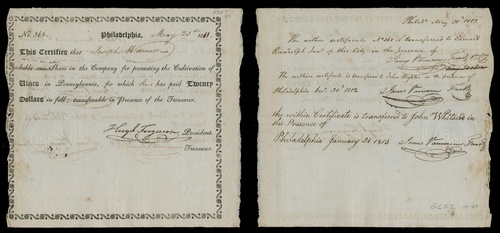 No. 268
Philadelphia, May 23d 1811
This Certifies that Joseph Warner
holds one Share in the Company for promoting the Cultivation of
Vines in Pennsylvania, for which he has paid Twenty
Dollars in full: transferable in Presence of the Treasurer.
Hugh Ferguson President.
Treasurer.
Philada May 30th 1812
The within certificate No 268 is transferred to Edward
Randolph Junr of this City in the presence of
James Vanuxem
The within certificate is transferred to John in the presence of
Philadelphia 30th 1812
James Vanuxem
the within Certificate is transferred to John Whitehead in
the Presence of
Philadelphia January 21 1813
James Vanuxem